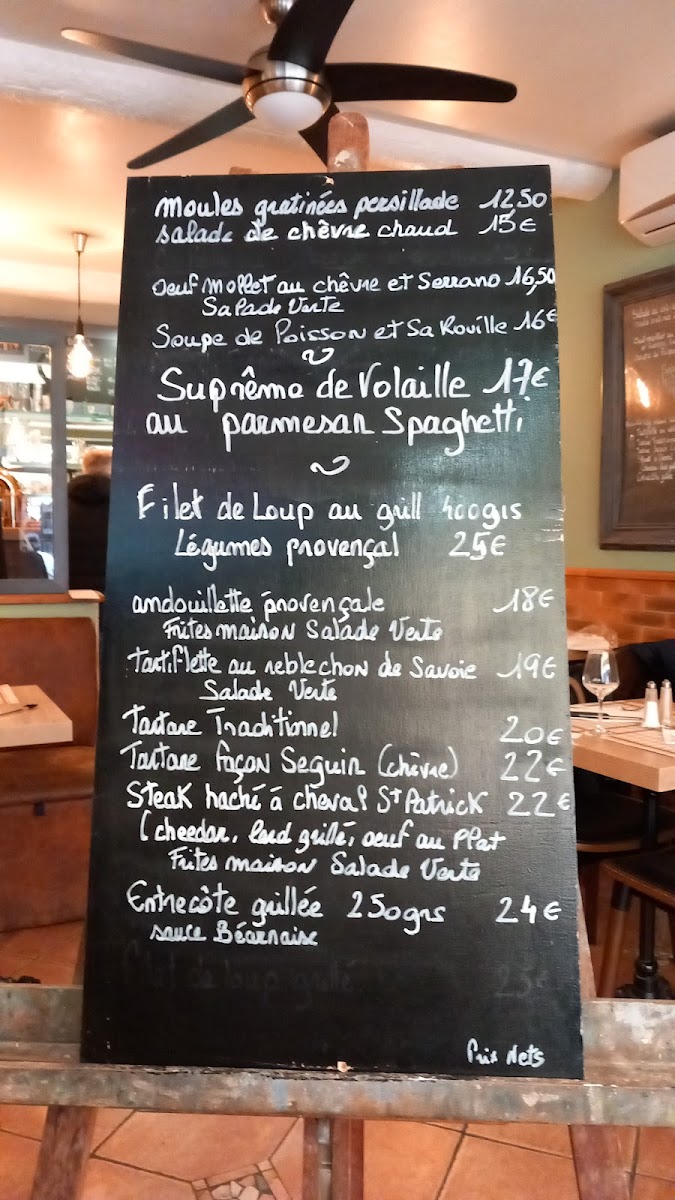 Moules gratinées persillade 12 50
salade de chèvre chaud 15€
Oeuf Mollet au chèvre et Serrano 16,50
Salade Verte
Soupe de Poisson et Sa Rouille 16€
Suprême de Volaille 17€
au parmesan Spaghetti
Filet de Loup au grill 400grs
Légumes provençal 25€
andouillette provençale 18€
Frites maison Salade Verte
Tartiflette au reblechon de Savoie 19€
Salade Verte
Tartare Traditionnel 20€
Tartare façon Seguin (chèvre) 22€
Steak haché à cheval St Patrick 22€
(cheedar, lard grillé, oeuf au Plat
Frites maison Salade Verte
Entrecôte grillée 250grs 24€
sauce Béarnaise
Filet de loup grillé 25€
Prix Nets